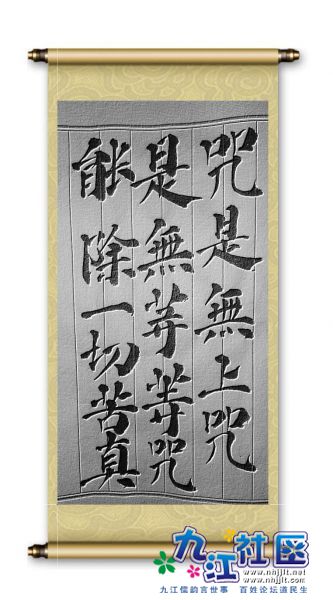 咒是無上咒
是無等等咒
能除一切苦真
九江社区
www.nhjjlt.net
www.nhjjlt.com
九江儒韵言世事 百姓论坛道民生